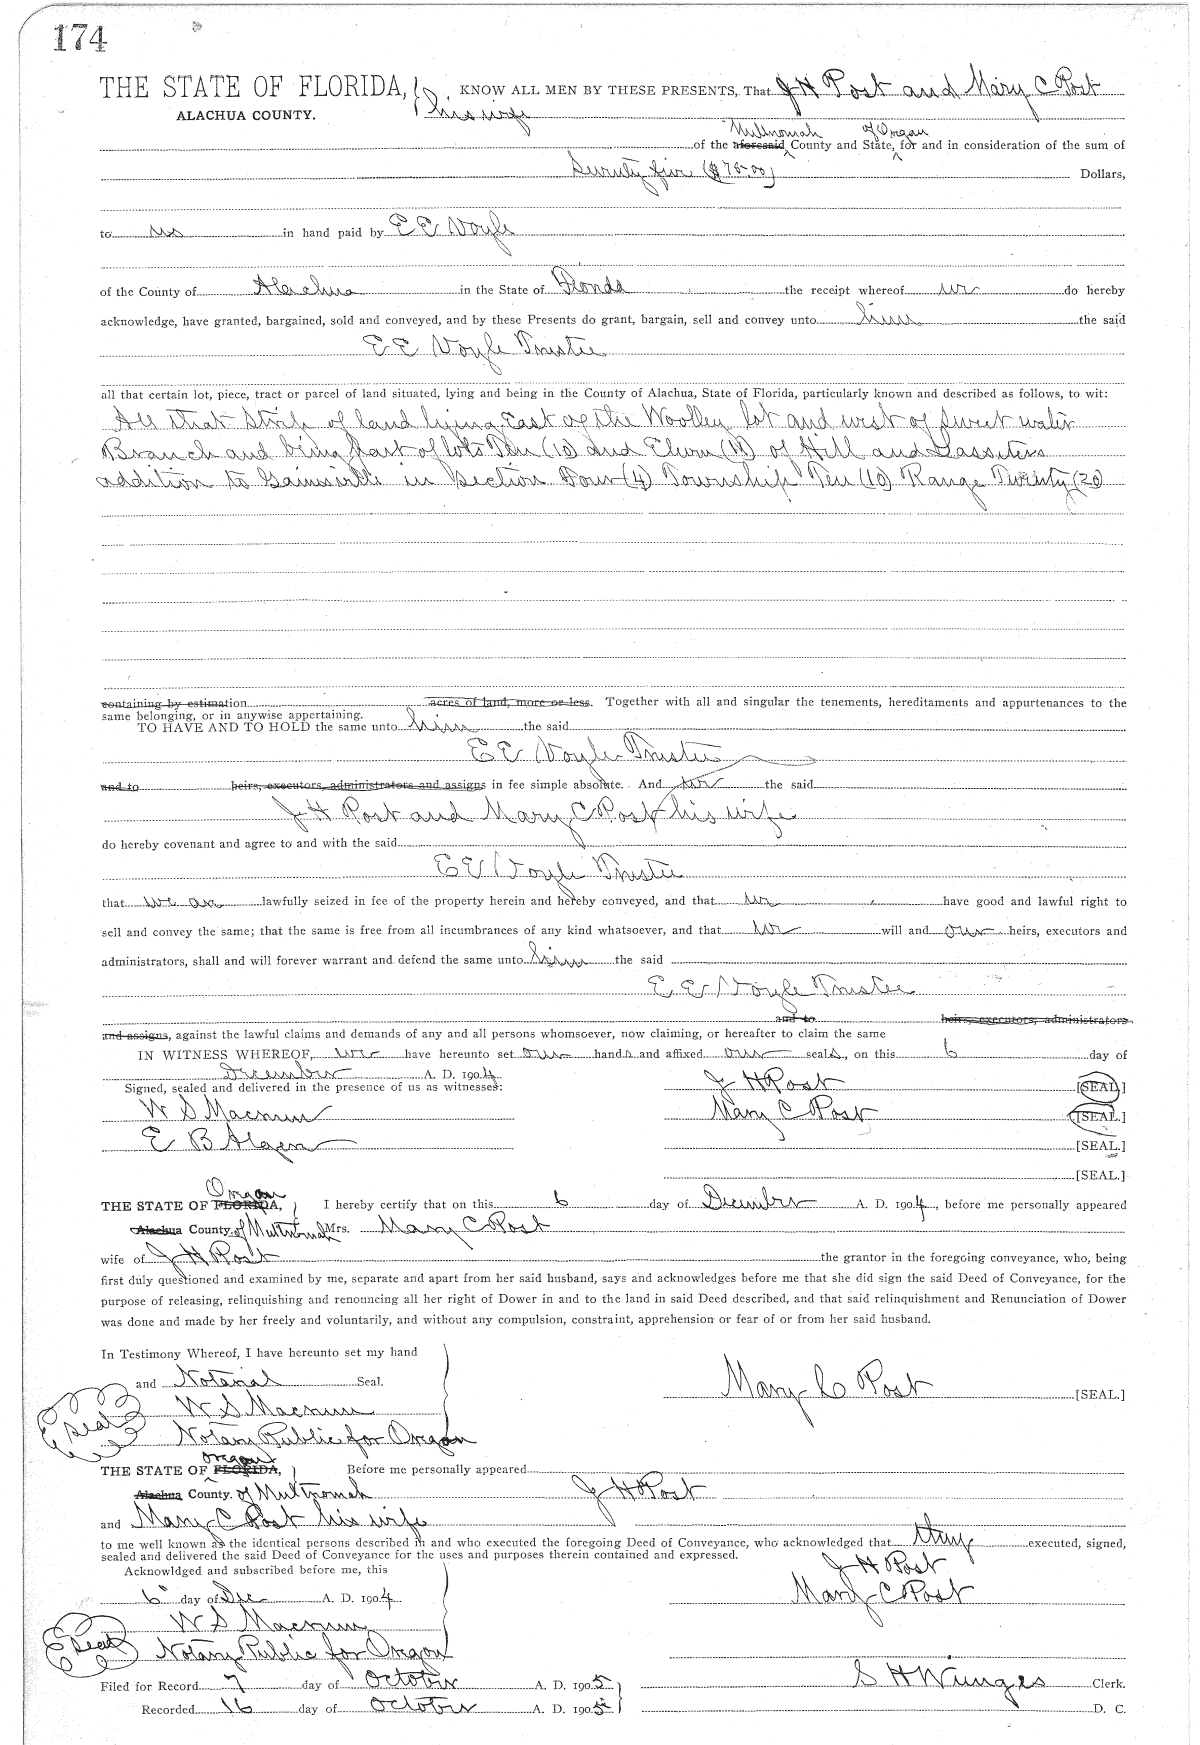 174
THE STATE OF FLORIDA, KNOW ALL MEN BY THESE PRESENTS, That J H Post and Mary C Post
ALACHUA COUNTY. his wife
Multnomah of Oregon
of the aforesaid County and State, for and in consideration of the sum of
Seventy five ($75.00) Dollars,
to us in hand paid by E E Voyle
of the County of Alachua in the State of Florida the receipt whereof we do hereby
acknowledge, have granted, bargained, sold and conveyed, and by these Presents do grant, bargain, sell and convey unto him the said
E E Voyle Trustee
all that certain lot, piece, tract or parcel of land situated, lying and being in the County of Alachua, State of Florida, particularly known and described as follows, to wit:
All that Strip of land lying East of the Woolley lot and west of Sweet water
Branch and being part of lots Ten (10) and Eleven (11) of Hill and Lassiters
addition to Gainsville in Section Four (4) Township Ten (10) Range Twenty (20)
containing by estimation acres of land, more or less. Together with all and singular the tenements, hereditaments and appurtenances to the
same belonging, or in anywise appertaining.
TO HAVE AND TO HOLD the same unto him the said
E E Voyle Trustee
and to heirs, executors, administrators and assigns in fee simple absolute. And we the said
J H Post and Mary C Post his wife
do hereby covenant and agree to and with the said
E E Voyle Trustee
that we are lawfully seized in fee of the property herein and hereby conveyed, and that we have good and lawful right to
sell and convey the same; that the same is free from all incumbrances of any kind whatsoever, and that we will and our heirs, executors and
administrators, shall and will forever warrant and defend the same unto him the said
E E Voyle Trustee
and to heirs, executors, administrators
and assigns, against the lawful claims and demands of any and all persons whomsoever, now claiming, or hereafter to claim the same
IN WITNESS WHEREOF, we have hereunto set our hands and affixed our seals, on this 6 day of
December A. D. 1904.
Signed, sealed and delivered in the presence of us as witnesses: J H Post [SEAL]
W S Macrum Mary C Post [SEAL.]
E B [SEAL.]
[SEAL.]
Oregon
THE STATE OF FLORIDA, I hereby certify that on this 6 day of December A. D. 1904, before me personally appeared
Alachua County. of Multnomah Mrs. Mary C Post
wife of J H Post the grantor in the foregoing conveyance, who, being
first duly questioned and examined by me, separate and apart from her said husband, says and acknowledges before me that she did sign the said Deed of Conveyance, for the
purpose of releasing, relinquishing and renouncing all her right of Dower in and to the land in said Deed described, and that said relinquishment and Renunciation of Dower
was done and made by her freely and voluntarily, and without any compulsion, constraint, apprehension or fear of or from her said husband.
In Testimony Whereof, I have hereunto set my hand
and Notarial Seal. Mary C Post [SEAL.]
Seal W S Macrum
Notary Public for Oregon
Oregon
THE STATE OF FLORIDA, Before me personally appeared
Alachua County. of Multnomah J H Post
and Mary C Post his wife
to me well known as the identical persons described in and who executed the foregoing Deed of Conveyance, who acknowledged that they executed, signed,
sealed and delivered the said Deed of Conveyance for the uses and purposes therein contained and expressed.
Acknowldged and subscribed before me, this J H Post
6" day of Dec A. D. 1904 Mary C Post
W S Macrum
Seal Notary Public for Oregon
Filed for Record 7 day of October A. D. 1905 S H Wienges Clerk.
Recorded 16 day of October A. D. 1905 D. C.